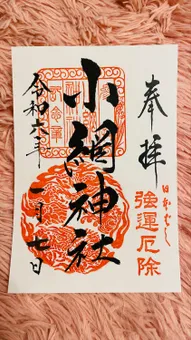 奉拝
日本ばし
強運厄除
小網神社
令和六年
一月七日